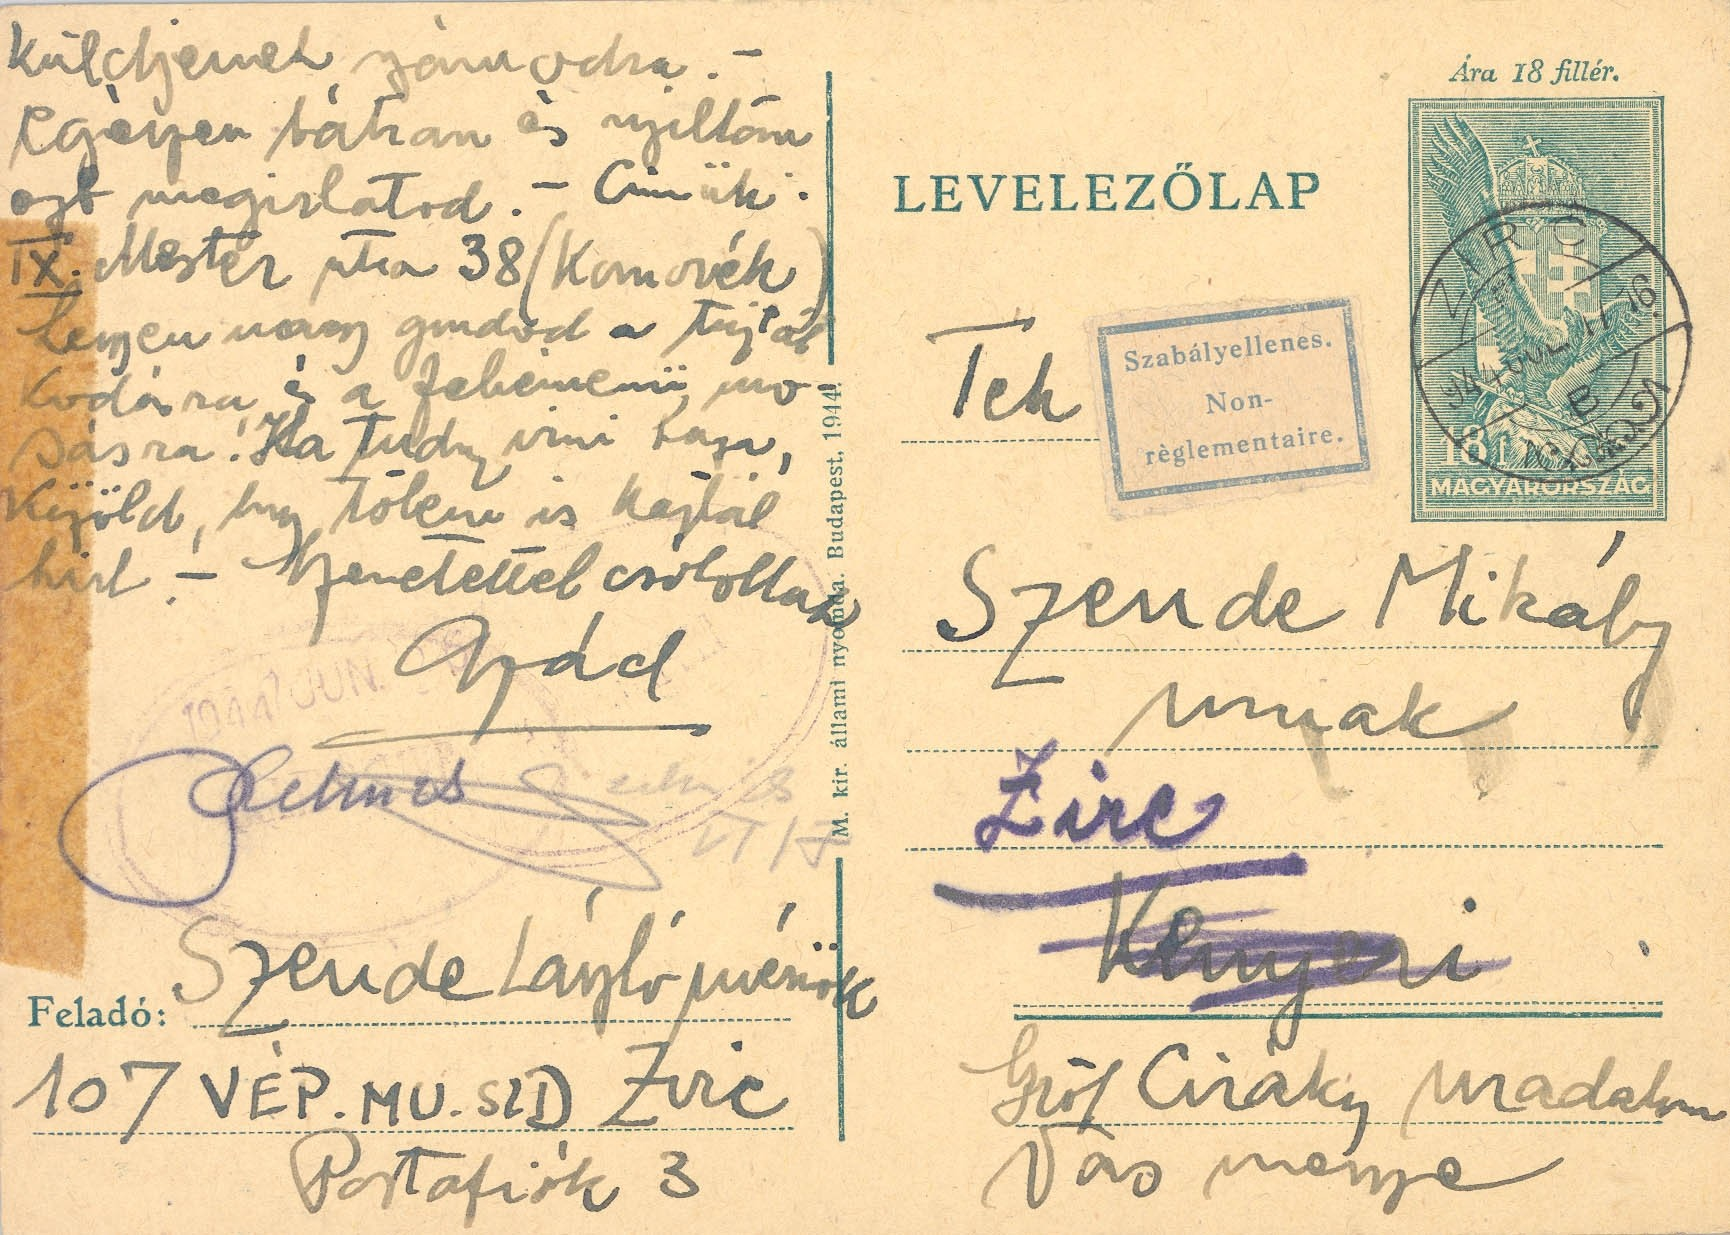 Küldjenek számodra. –
Egészen bátran és nyiltan
ezt megirhatod. – Cimük:
IX. Mester utca 38 (Komorék)
Legyen nagy gondod a
és a fehérnemü mo-
sásra! Ha tudsz irni haza,
közöld, hogy tőlem is kaptál
hirt. – Szeretettel csókollak
Apád
1944 JUN.
Feladó: Szende László mérnök
107 VÉP. MU. SZD Zirc
Postafiók 3
M. kir. állami nyomda. Budapest, 1944.
Ára 18 fillér.
LEVELEZŐLAP
18f
MAGYARORSZÁG
ZIRC
944 JUL 17 16
Szabályellenes.
Non-
règlementaire.
Tek
Szende Mihály
urnak
Zirc
Kenyeri
Gróf Ciráky uradalom
Vas megye